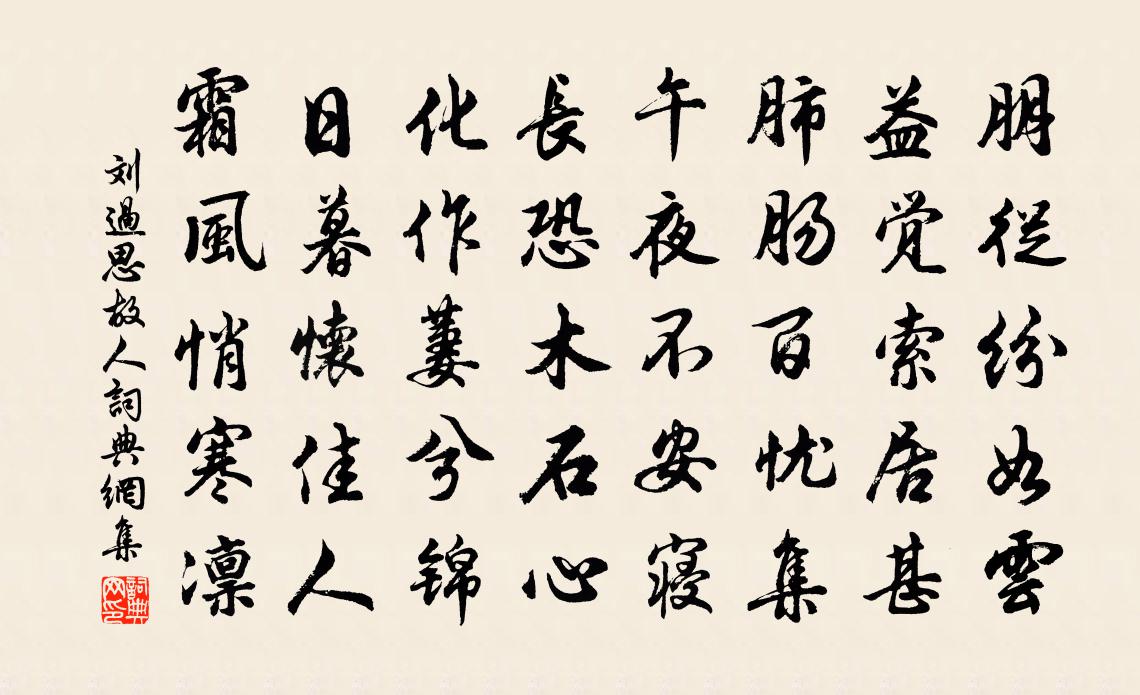 朋從紛如雲
益觉索居甚
肺肠百忧集
午夜不安寝
長恐木石心
化作萋兮锦
日暮懷佳人
霜風悄寒凛
刘過思故人詞典網集
詞典网印